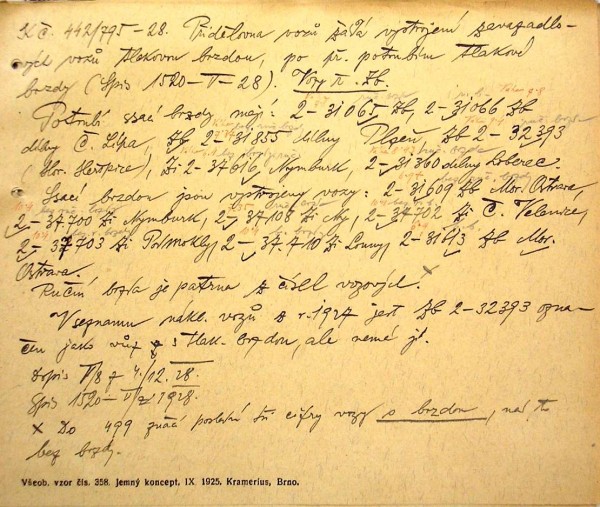 K č. 442/795-28. Přidělovna vozů žádá vystrojení zavazadlo-
vých vozů tlakovou brzdou, po př. potrubím tlakové
brzdy (Spis 1520-V-28). Vozy ř. Zb.
Potrubí ssací brzdy mají: 2-31065 Zb, 2-31066 Zb
dílny Č. Lípa, Zb 2-31855 dílny Plzeň, Zb 2-32393
(Hor. Heršpice), Zi 2-37616, Nymburk, 2-31360 dílny Liberec.
Ssací brzdou jsou vystrojeny vozy: 2-31609 Zb Mor. Ostrava,
2-37701 Zi Nymburk, 2-37108 Zi 2-34702 Zi Č. Velenice,
2-37703 Zi Podmokly, 2-37.710 Zi Louny, 2-31613 Zb Mor.
Ostrava.
Ruční brzda je patrna z čísel vozových. x
V seznamu nákl. vozů z r. 1927 jest Zb 2-32393 ozna-
čen jako vůz s tlak. brzdou, ale nemá jí.
Dopis V/8 z 4./12. 28.
Spis 1520-V z 1928.
x Do 499 značí poslední tři cifry vozy s brzdou, nad to
bez brzdy.
Všeob. vzor čís. 358. jemný koncept. IX. 1925. Kramerius, Brno.